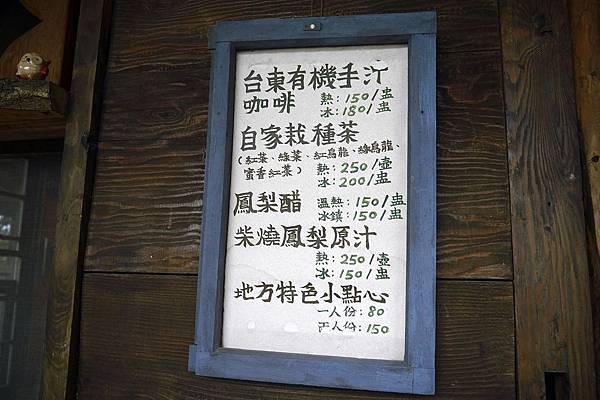 台東有機手汁
咖啡 熱:150/盅
冰:180/盅
自家栽種茶
(紅茶、綠茶、紅烏龍、綠烏龍、
蜜香紅茶) 熱:250/壺
冰:200/盅
鳳梨醋 溫熱:150/盅
冰鎮:150/盅
柴燒鳳梨原汁
熱:250/壺
冰:150/盅
地方特色小點心
一人份:80
人份:150